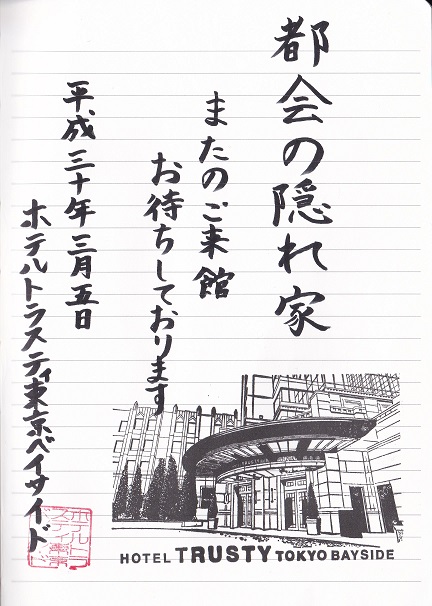 都会の隠れ家
またのご来館
お待ちしております
平成三十年三月五日
ホテルトラスティ東京ベイサイド
HOTEL TRUSTY TOKYO BAYSIDE